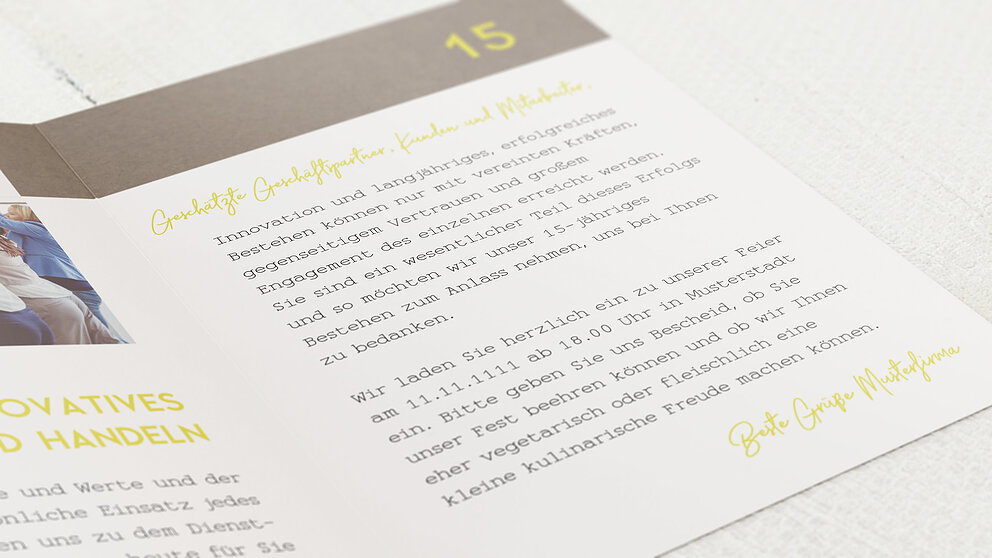 15
Geschätzte Geschäftspartner, Kunden und Mitarbeiter,
Innovation und langjähriges, erfolgreiches
Bestehen können nur mit vereinten Kräften,
gegenseitigem Vertrauen und großem
Engagement des einzelnen erreicht werden.
Sie sind ein wesentlicher Teil dieses Erfolgs
und so möchten wir unser 15-jähriges
Bestehen zum Anlass nehmen, uns bei Ihnen
zu bedanken.
Wir laden Sie herzlich ein zu unserer Feier
am 11.11.1111 ab 18.00 Uhr in Musterstadt
ein. Bitte geben Sie uns Bescheid, ob Sie
unser Fest beehren können und ob wir Ihnen
eher vegetarisch oder fleischlich eine
kleine kulinarische Freude machen können.
Beste Grüße Musterfirma
OVATIVES
D HANDELN
e und Werte und der
önliche Einsatz jedes
en uns zu dem Dienst-
heute für Sie